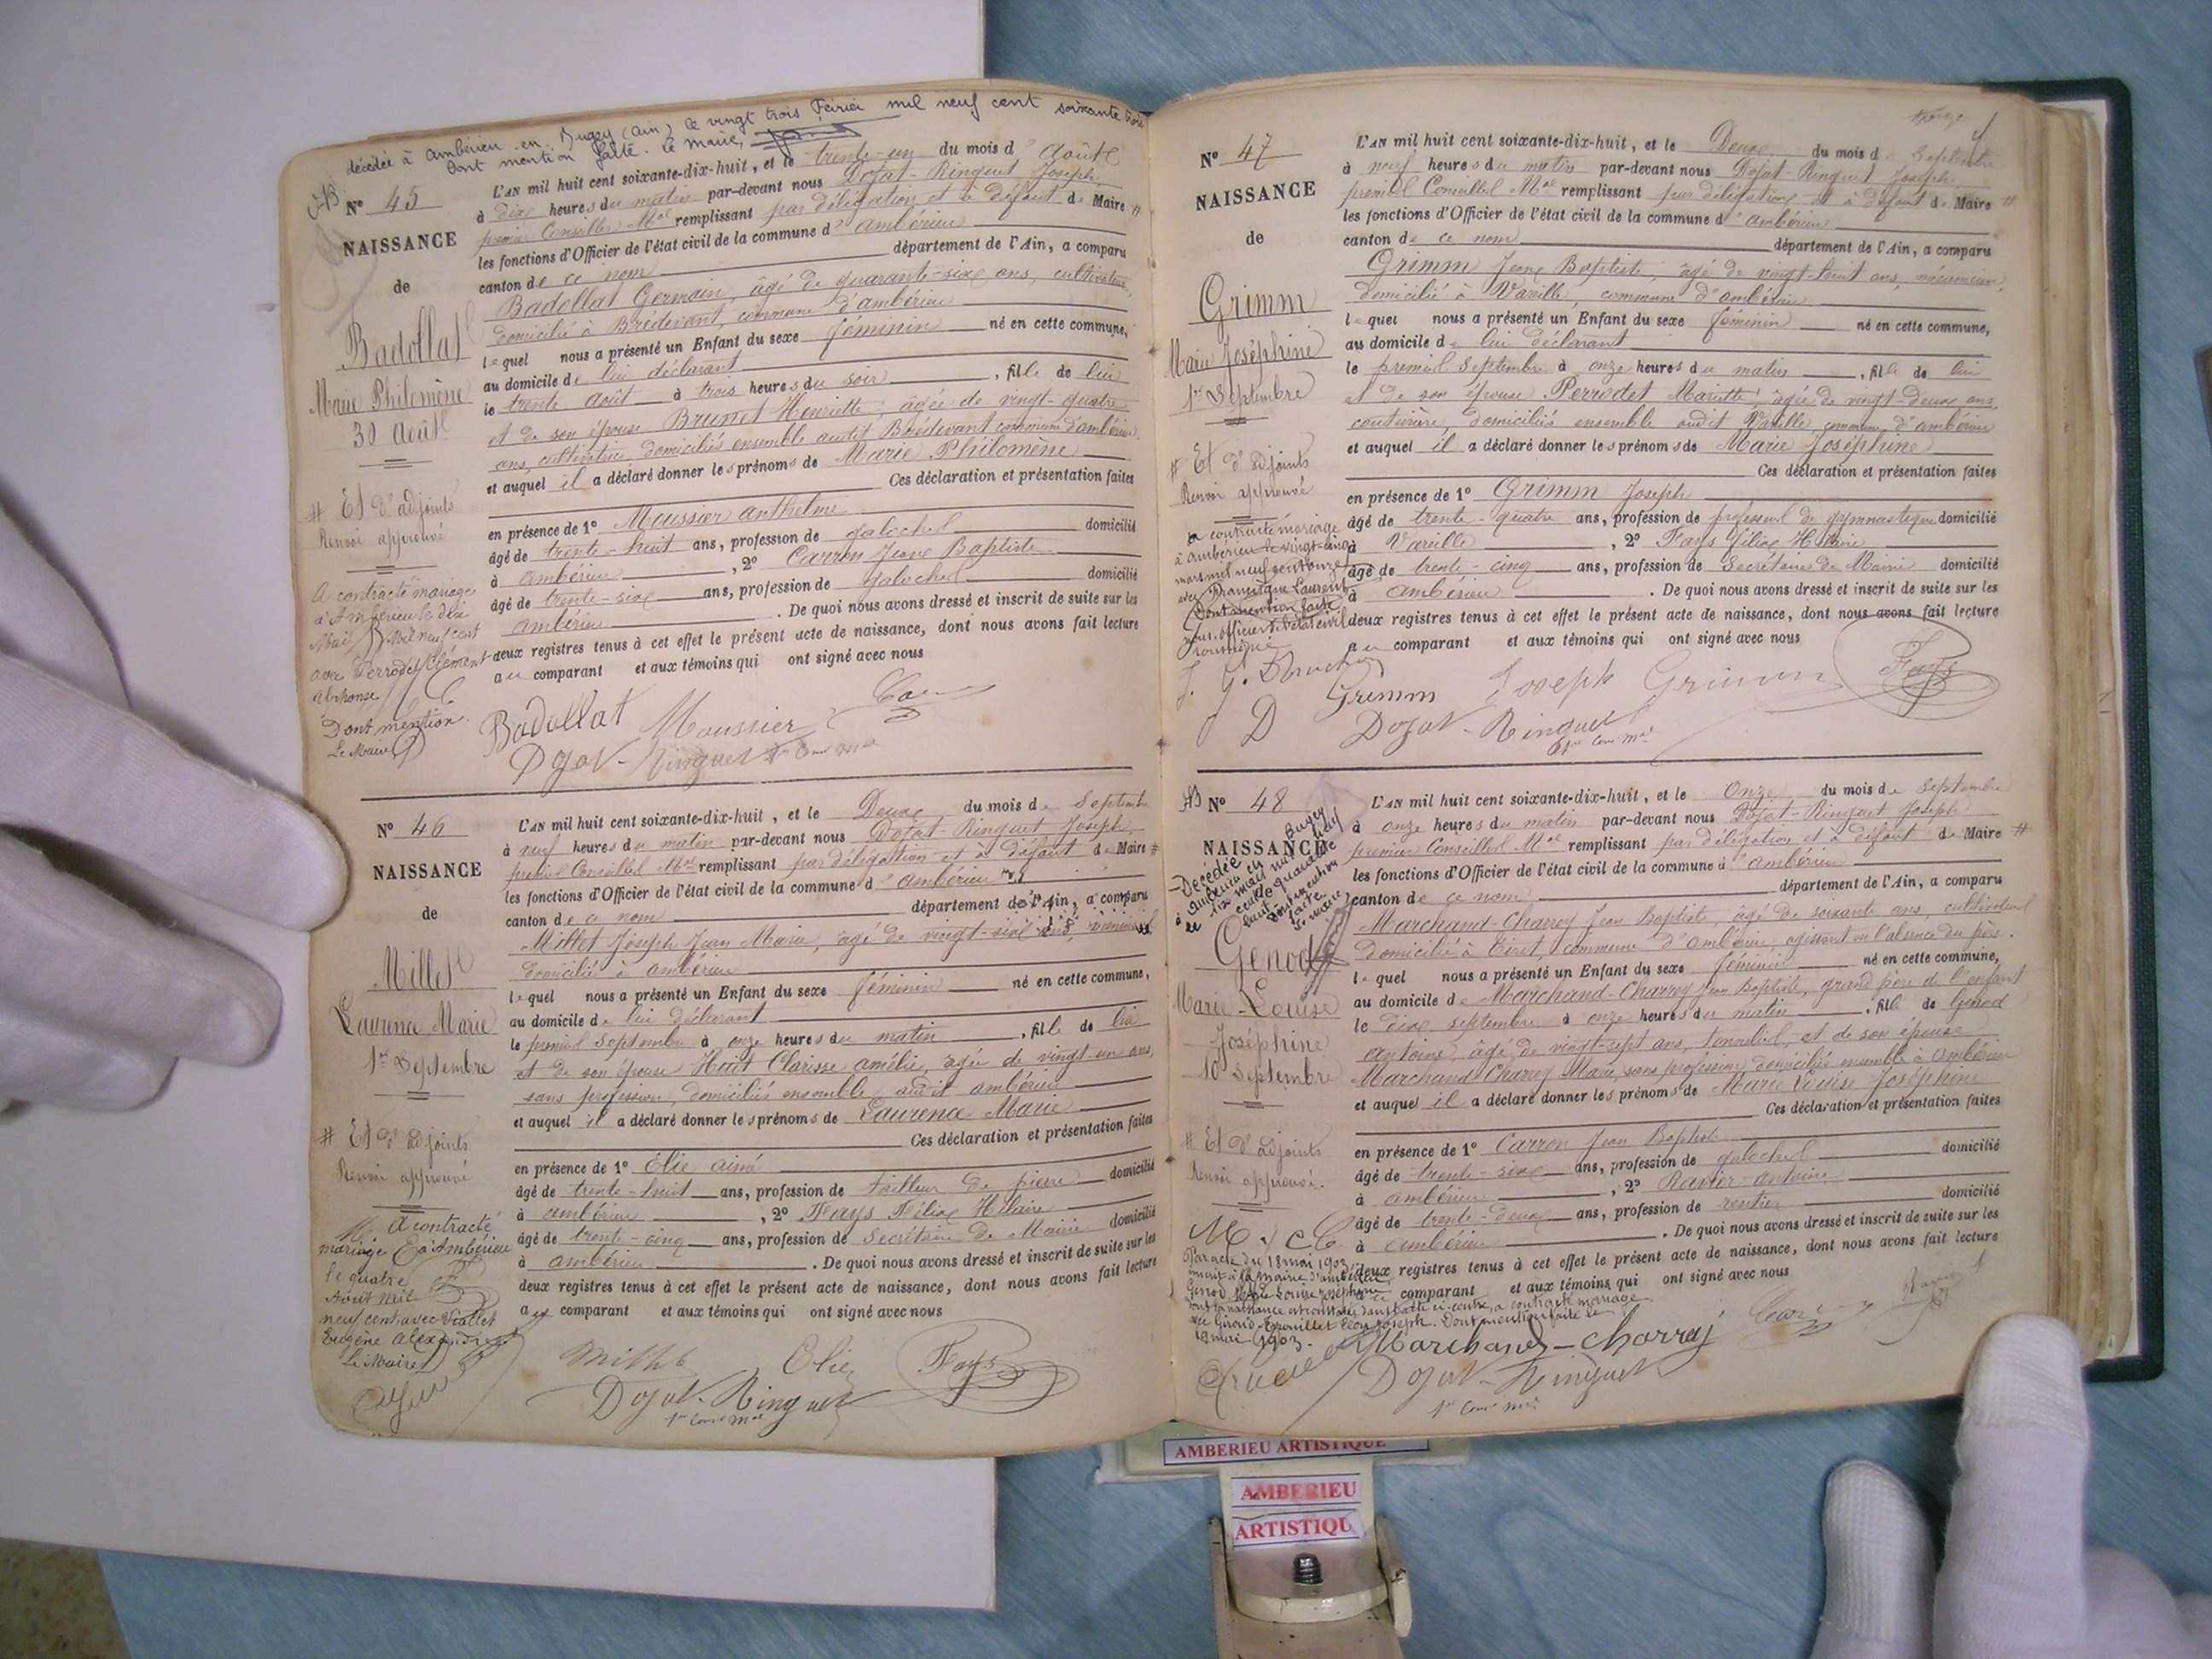 décédée à Ambérieu en Bugey (Ain) le vingt trois Février mil neuf cent soixante trois
Dont mention faite. Le Maire,
N° 45
NAISSANCE
de
Badollat
Marie Philomène
30 Août
# Et d'adjoints
Renvoi approuvé
A contracté mariage
à Ambérieu le dix
Mai mil neuf cent
avec Perrodet Clément
Alphonse
Dont mention.
Le Maire
L'AN mil huit cent soixante-dix-huit, et le trente-un du mois d'Août
à dix heures du matin par-devant nous Dojat-Ringuet Joseph
premier Conseiller Mal remplissant par délégation et à défaut de Maire #
les fonctions d'Officier de l'état civil de la commune d'Ambérieu
canton de ce nom département de l'Ain, a comparu
Badollat Germain, âgé de quarante-six ans, cultivateur,
domicilié à Brédevant, commune d'Ambérieu
lequel nous a présenté un Enfant du sexe féminin né en cette commune,
au domicile de lui déclarant
le trente Août à trois heures du soir, fille de lui
et de son épouse Brunet Henriette, âgée de vingt-quatre
ans, cultivatrice, domiciliés ensemble audit Brédevant commune d'Ambérieu
et auquel il a déclaré donner les prénoms de Marie Philomène
Ces déclaration et présentation faites
en présence de 1° Moussier Anthelme
âgé de trente-huit ans, profession de galocheur domicilié
à Ambérieu, 2° Carron Jean Baptiste
âgé de trente-six ans, profession de galocheur domicilié
Ambérieu. De quoi nous avons dressé et inscrit de suite sur les
deux registres tenus à cet effet le présent acte de naissance, dont nous avons fait lecture
au comparant et aux témoins qui ont signé avec nous
Badollat Moussier
Dojat-Ringuet 1er Conr Mal
N° 46
NAISSANCE
de
Millet
Laurence Marie
1er Septembre
# Et d'adjoints
Renvoi approuvé
A contracté
mariage à Ambérieu
le quatre
Août mil
neuf cent avec Viallet
Eugène Alexandre
Le Maire
L'AN mil huit cent soixante-dix-huit, et le Deux du mois de Septembre
à neuf heures du matin par-devant nous Dojat-Ringuet Joseph
premier Conseiller Mal remplissant par délégation et à défaut de Maire #
les fonctions d'Officier de l'état civil de la commune d'Ambérieu
canton de ce nom département de l'Ain, a comparu
Millet Joseph Jean Marie, âgé de vingt-six ans,
domicilié à Ambérieu
lequel nous a présenté un Enfant du sexe féminin né en cette commune,
au domicile de lui déclarant
le premier Septembre à onze heures du matin, fille de lui
et de son épouse Huit Clarisse Amélie, âgée de vingt-un ans,
sans profession, domiciliés ensemble audit Ambérieu
et auquel il a déclaré donner les prénoms de Laurence Marie
Ces déclaration et présentation faites
en présence de 1° Elie Aimé
âgé de trente-huit ans, profession de tailleur de pierre domicilié
à Ambérieu, 2° Fays Félix Hilaire
âgé de trente-cinq ans, profession de Secrétaire de Mairie domicilié
à Ambérieu. De quoi nous avons dressé et inscrit de suite sur les
deux registres tenus à cet effet le présent acte de naissance, dont nous avons fait lecture
au comparant et aux témoins qui ont signé avec nous
Millet Elie Fays
Dojat-Ringuet
1er Conr Mal
N° 47
NAISSANCE
de
Grimm
Marie Joséphine
1er Septembre
# Et d'adjoints
Renvoi approuvé
a contracté mariage
à Ambérieu le vingt-cinq
mars mil neuf cent onze
avec Laurent
Dont mention faite
nous, officier de l'état civil
soussigné
L'AN mil huit cent soixante-dix-huit, et le Deux du mois de Septembre
à neuf heures du matin par-devant nous Dojat-Ringuet Joseph
premier Conseiller Mal remplissant par délégation et à défaut de Maire #
les fonctions d'Officier de l'état civil de la commune d'Ambérieu
canton de ce nom département de l'Ain, a comparu
Grimm Jean Baptiste, âgé de vingt-huit ans, mécanicien,
domicilié à Vareille, commune d'Ambérieu
lequel nous a présenté un Enfant du sexe féminin né en cette commune,
au domicile de lui déclarant
le premier Septembre à onze heures du matin, fille de lui
et de son épouse Perrodet Mariette, âgée de vingt-deux ans,
couturière, domiciliés ensemble audit Vareille, commune d'Ambérieu
et auquel il a déclaré donner les prénoms de Marie Joséphine
Ces déclaration et présentation faites
en présence de 1° Grimm Joseph
âgé de trente-quatre ans, profession de professeur de gymnastique domicilié
à Vareille, 2° Fays Félix Hilaire
âgé de trente-cinq ans, profession de Secrétaire de Mairie domicilié
à Ambérieu. De quoi nous avons dressé et inscrit de suite sur les
deux registres tenus à cet effet le présent acte de naissance, dont nous avons fait lecture
au comparant et aux témoins qui ont signé avec nous
Grimm Joseph Grimm Fays
Dojat-Ringuet
1er Conr Mal
N° 48
NAISSANCE
Décédée
à Ambérieu en Bugey
le six mai mil neuf
cent quarante
huit
Dont mention
faite
Le maire
Genod
Marie-Louise
Joséphine
10 Septembre
# Et d'adjoints
Renvoi approuvé.
Par acte du 18 mai 1903,
inscrit à la mairie d'Ambérieu
Genod Marie Louise Joséphine
dont la naissance est constatée dans l'acte ci-contre, a contracté mariage
avec Léon Joseph. Dont mention faite le
19 mai 1903.
L'AN mil huit cent soixante-dix-huit, et le Onze du mois de Septembre
à onze heures du matin par-devant nous Dojat-Ringuet Joseph
premier Conseiller Mal remplissant par délégation et à défaut de Maire #
les fonctions d'Officier de l'état civil de la commune d'Ambérieu
canton de ce nom département de l'Ain, a comparu
Marchand-Charrey Jean Baptiste, âgé de soixante ans, cultivateur
domicilié à Tiret, commune d'Ambérieu, agissant en l'absence du père.
lequel nous a présenté un Enfant du sexe féminin né en cette commune,
au domicile de Marchand-Charrey Jean Baptiste, grand père de l'enfant
le dix septembre à onze heures du matin, fille de Genod
Antoine, âgé de vingt-sept ans, tonnelier, et de son épouse
Marchand-Charrey Marie, sans profession, domiciliés ensemble à Ambérieu
et auquel il a déclaré donner les prénoms de Marie Louise Joséphine
Ces déclaration et présentation faites
en présence de 1° Carron Jean Baptiste
âgé de trente-six ans, profession de galocheur domicilié
à Ambérieu, 2° Ravier Antoine
âgé de trente-deux ans, profession de rentier domicilié
à Ambérieu. De quoi nous avons dressé et inscrit de suite sur les
deux registres tenus à cet effet le présent acte de naissance, dont nous avons fait lecture
comparant et aux témoins qui ont signé avec nous
Marchand-Charrey
Dojat-Ringuet
1er Conr Mal
AMBERIEU ARTISTIQUE
AMBERIEU
ARTISTIQU